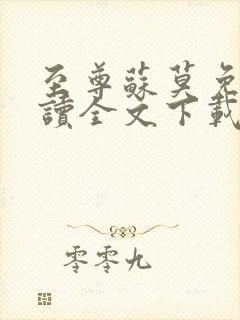 至尊蘇莫免
讀全文下載
零零九